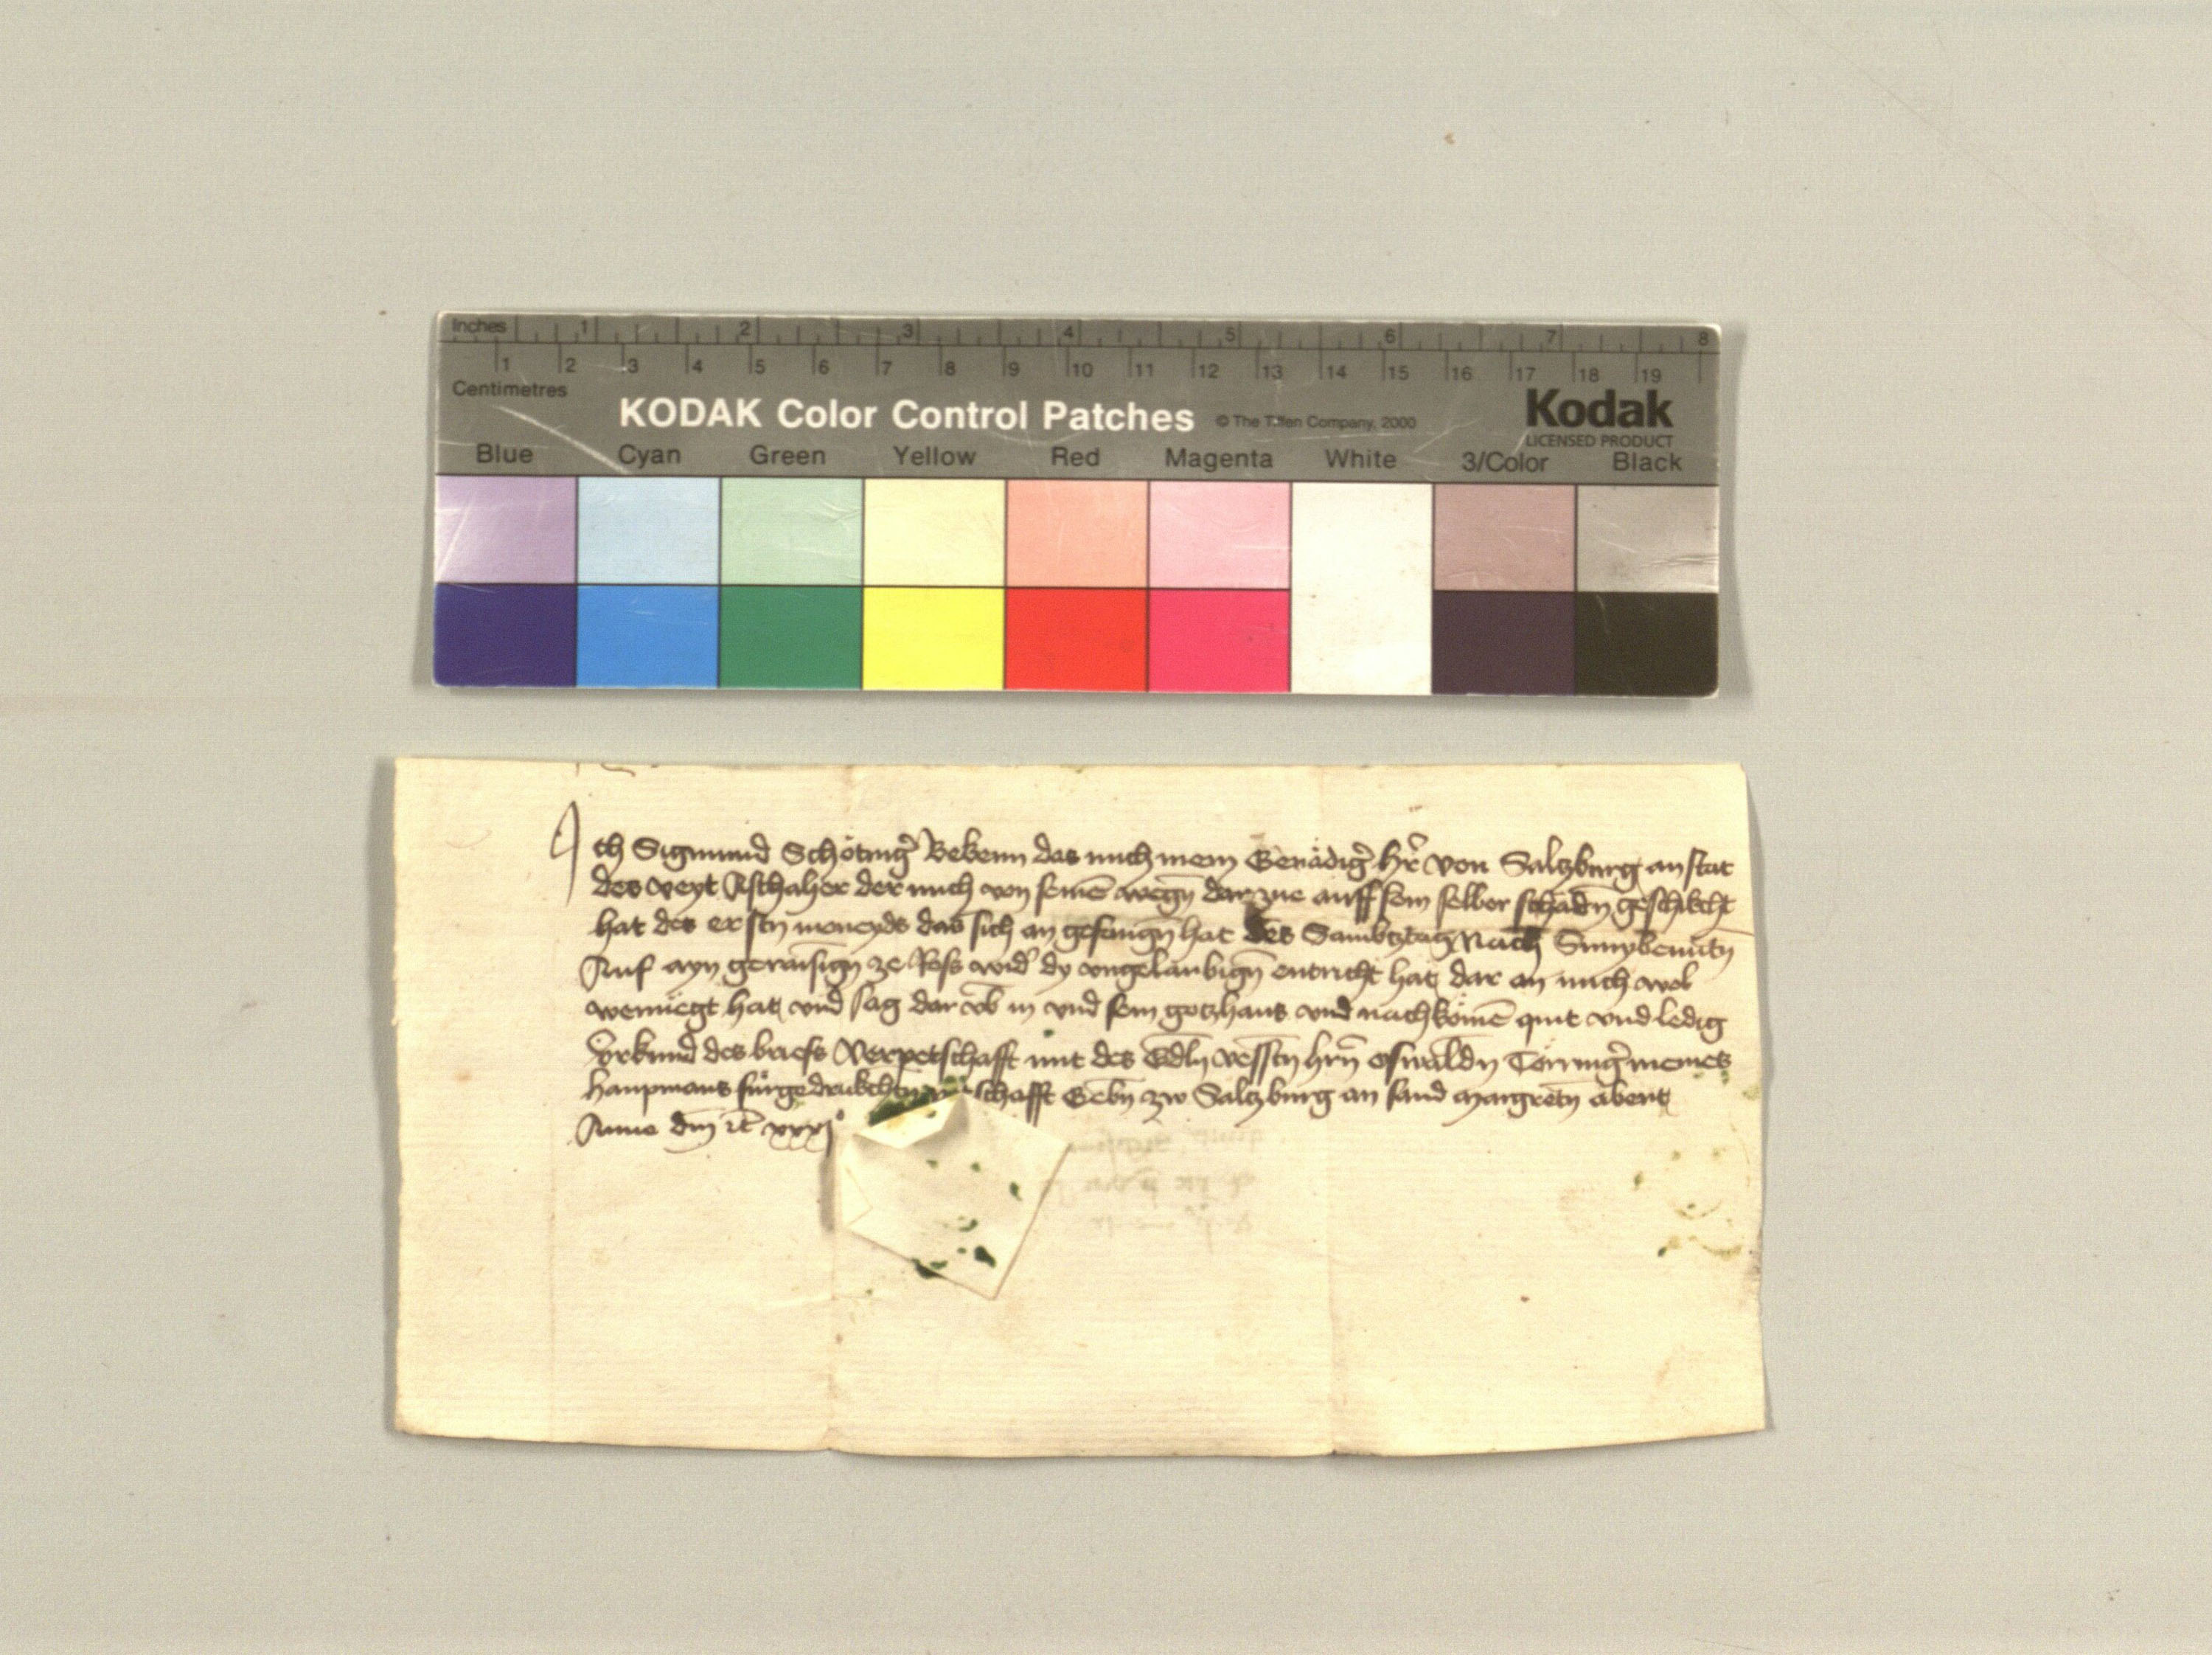 Inches 1 2 3 4 5 6 7 8
1 2 3 4 5 6 7 8 9 10 11 12 13 14 15 16 17 18 19
Centimetres
KODAK Color Control Patches © The Tiffen Company, 2000 Kodak
LICENSED PRODUCT
Blue Cyan Green Yellow Red Magenta White 3/Color Black
Ich Sigmund Schöting̉ Bekenn das mich mein Genädig̉ hr̉ von Salzburg an stat
des veyt Aschaher der mich von seinē wegn̄ dar zue auff sein selber schadn̄ geschikcht
hat des erstn moneyds das sich an gefangn̄ hat des Sambtztag nach Sunybentn̄
Auf ayn geraisign ze Ross wid̉ dy ungelaubign̄ entricht hat dar an mich wol
wenuegt hat vnd sag dar vb̄ in vnd sein gotzhaus vnd nachkömē quit vnd ledig
vrkund des briefs Verpetschafft mit des Edln̄ vesstn hrn̄ oswaldn Törring̉ meines
haupmans fürgedrukchtn schafft Gebn̄ zw Salzburg an sand margretn̄ abent
Anno dm̄ rc̄ xxxjº